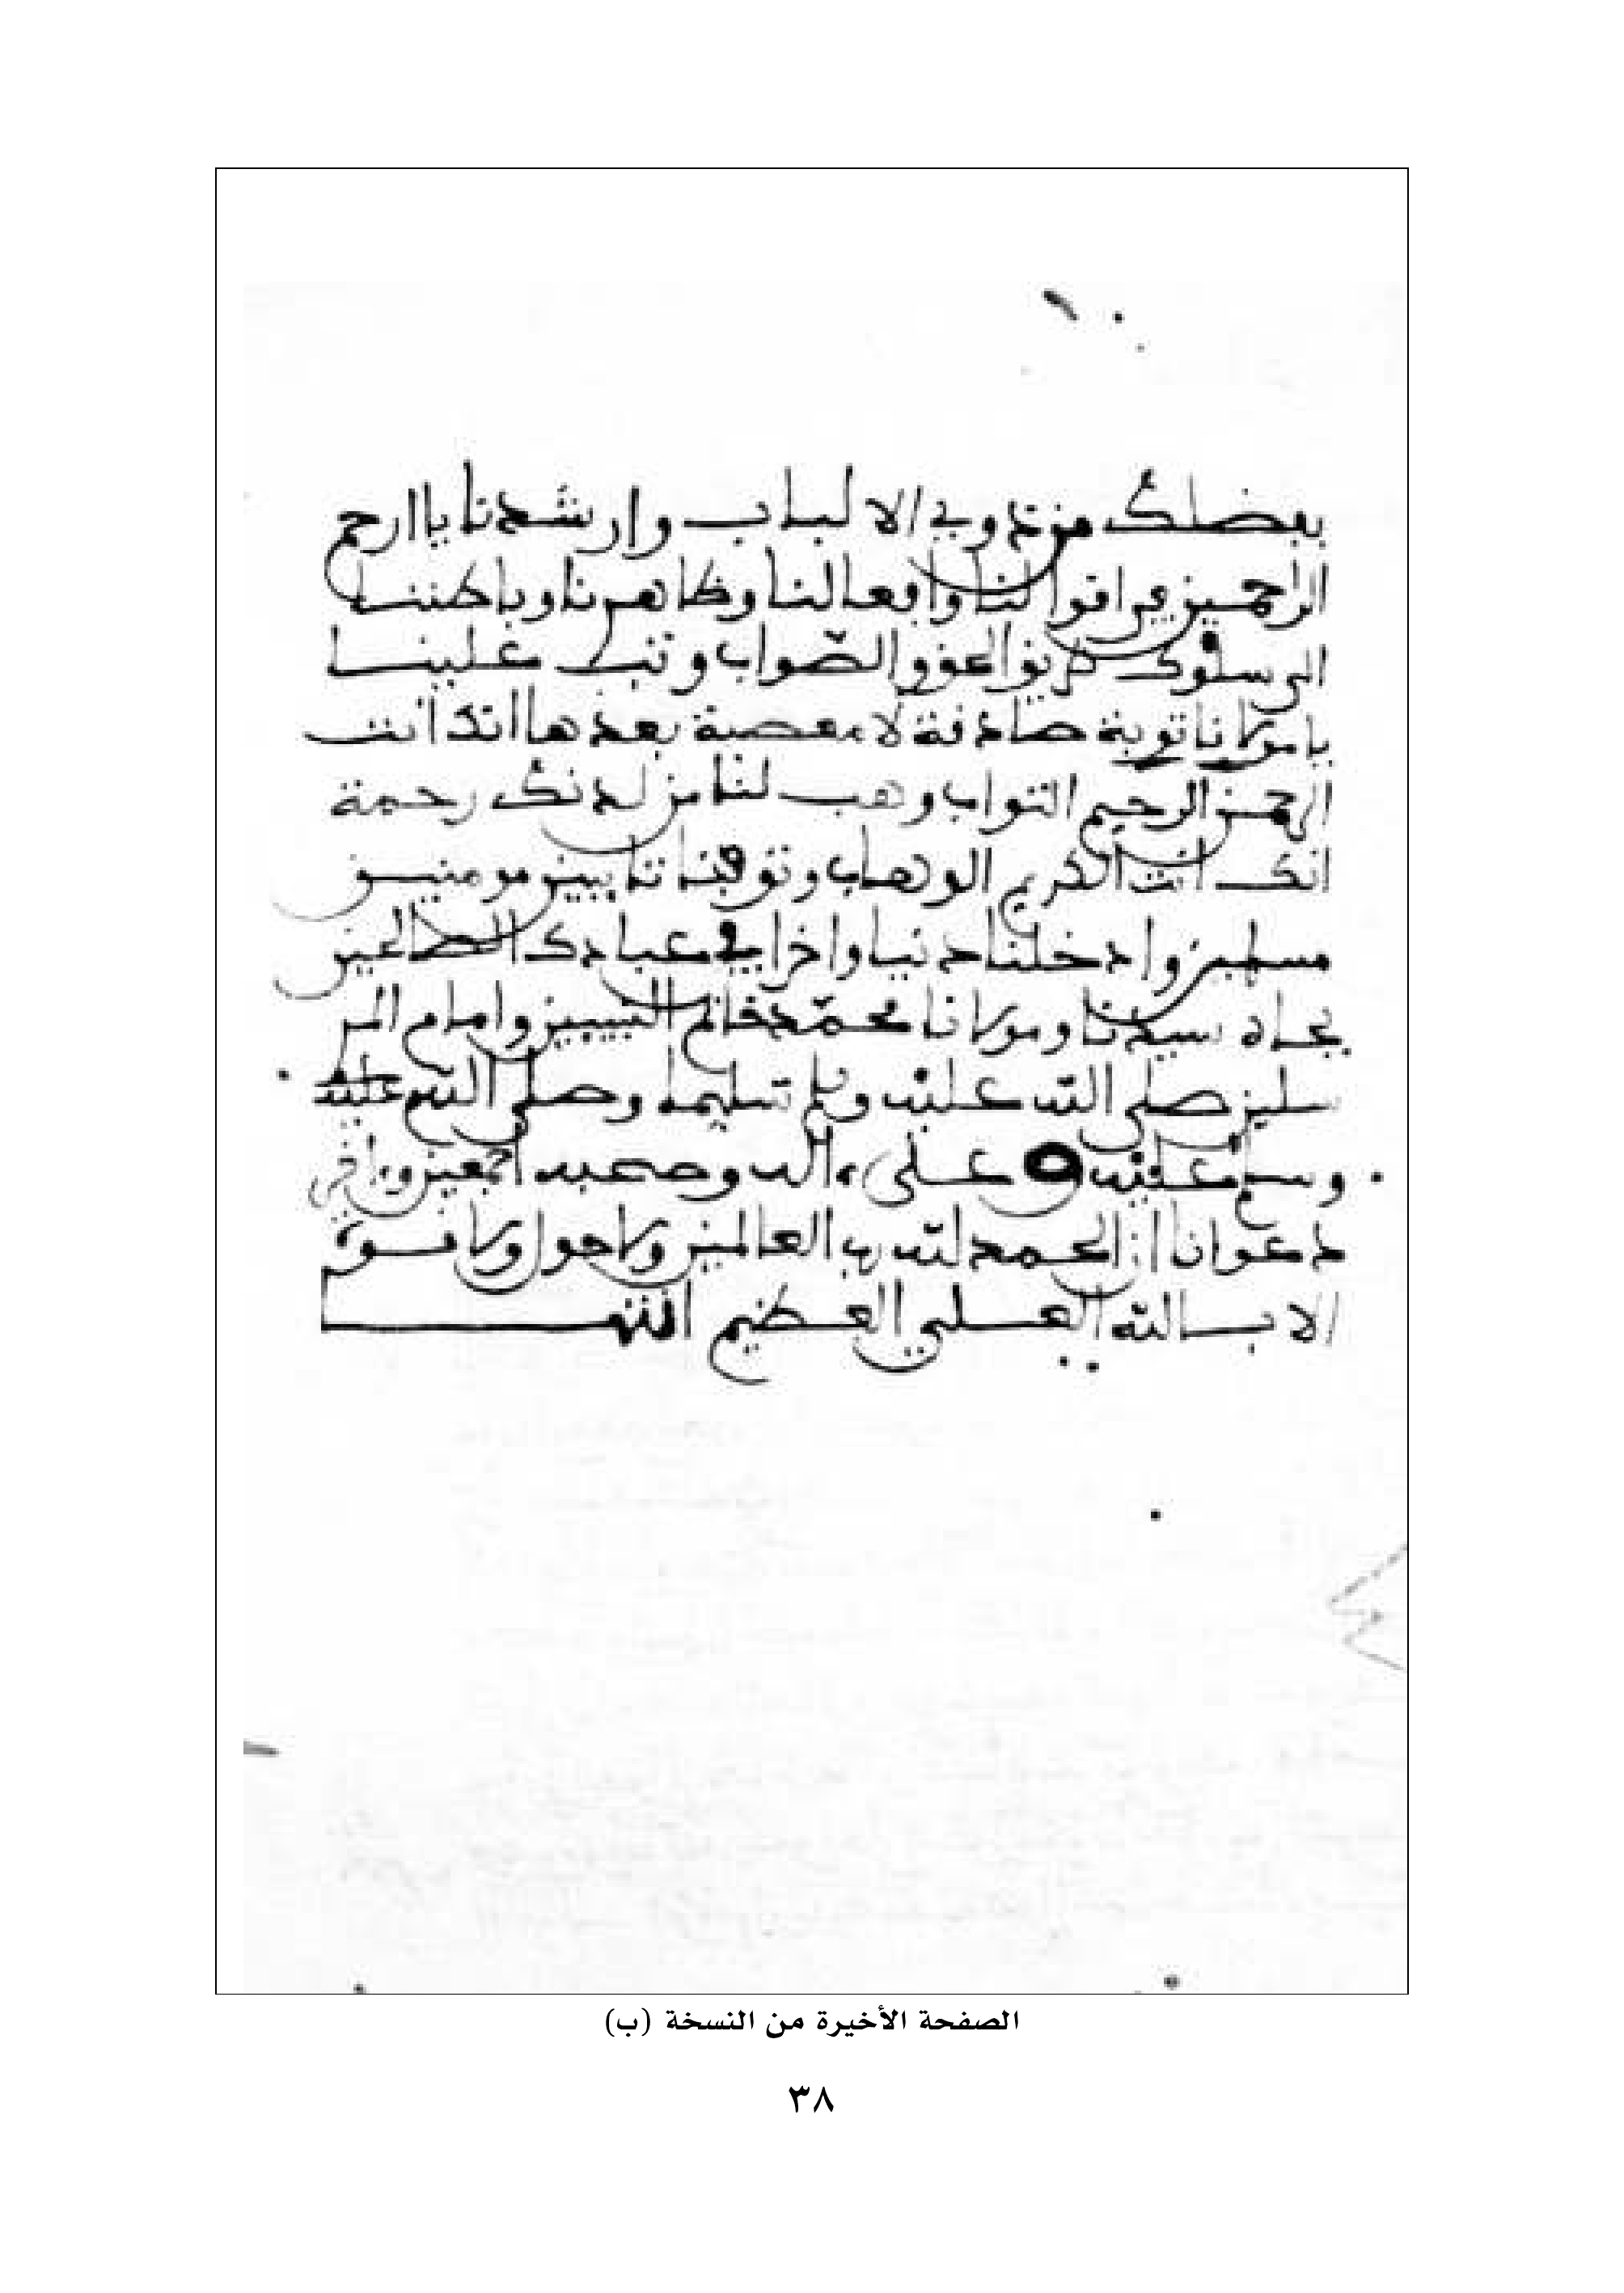 بفضلك من ذوي الالباب وارشدنا يا ارحم
الراحمين في اقوالنا وافعالنا وظاهرنا وباطننا
الى سلوك طريق الحق والصواب وتب علينا
يا مولانا توبة صادفة لا معصية بعدها انك انت
الرحمن الرحيم التواب وهب لنا من لدنك رحمة
انك انت الكريم الوهاب وتوفنا تايبين مومنين
مسلمين وادخلنا دنيا واخرا في عبادك الصالحين
بجاه سيدنا ومولانا محمد خاتم النبيين وامام المر
سلين صلى الله عليه وسلم تسليما وصلى الله
وسلم عليه وعلى ءاله وصحبه اجمعين وءاخر
دعوانا ان الحمد لله رب العالمين ولا حول ولا قوة
الا بالله العلي العظيم انتها
الصفحة الأخيرة من النسخة (ب)
٣٨